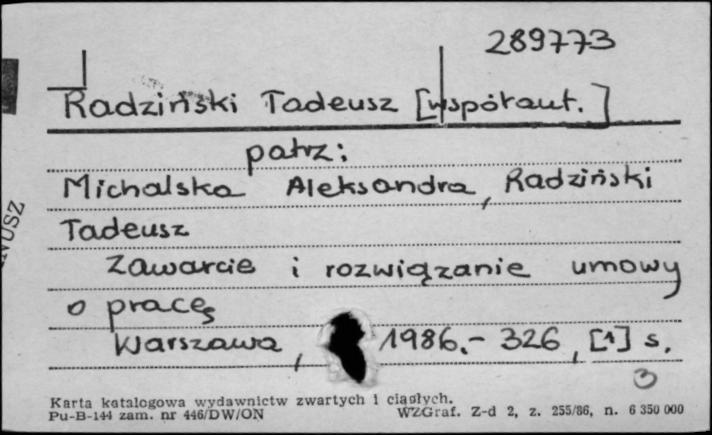 289773
Radziński Tadeusz [współaut.]
patrz:
Michalska Aleksandra, Radziński
Tadeusz
Zawarcie i rozwiązanie umowy
o pracę
Warszawa, 1986.- 326, [1] s.
3
Karta katalogowa wydawnictw zwartych i ciągłych.
Pu-B-144 zam. nr 446/DW/ON WZGraf. Z-d 2, z. 255/86, n. 6 350 000